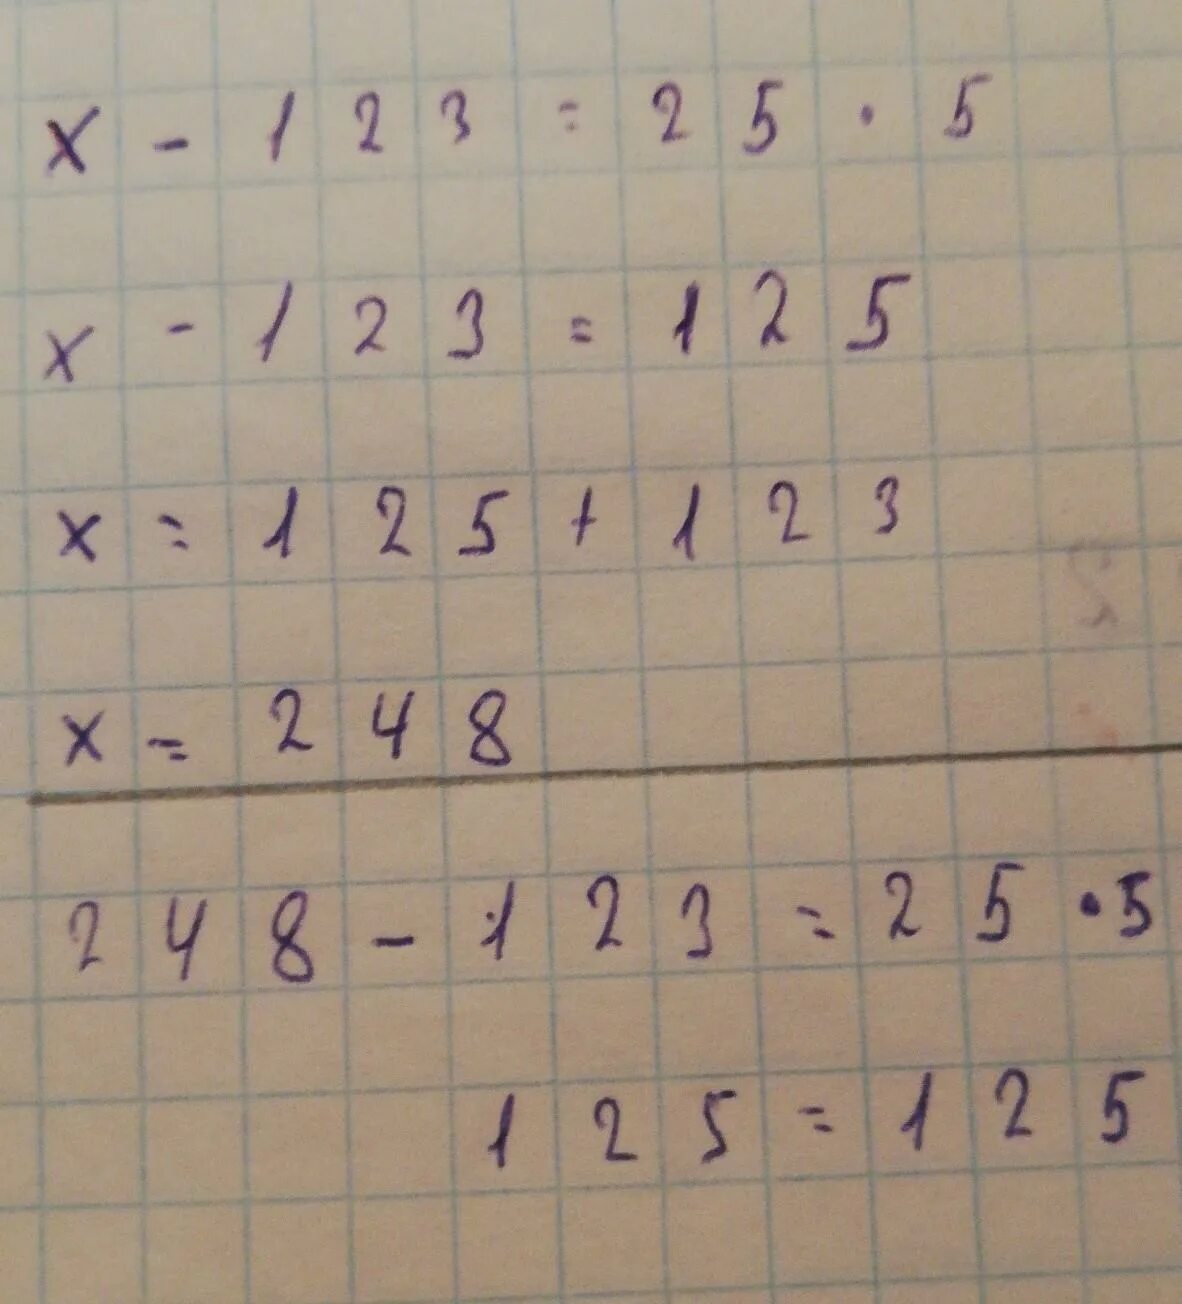 x - 123 = 25 · 5
x - 123 = 125
x = 125 + 123
x = 248
248 - 123 = 25 · 5
125 = 125